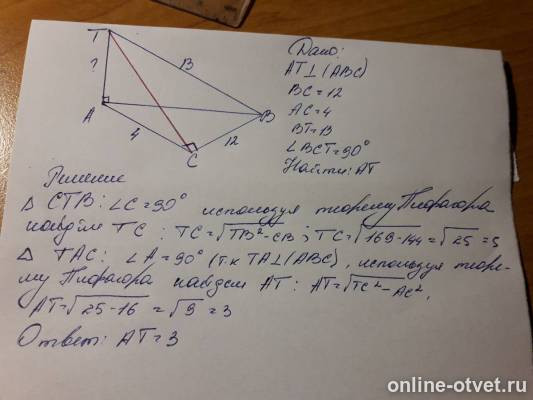 T
?
13
A
B
4
12
C
Дано:
AT⊥(ABC)
BC=12
AC=4
BT=13
∠BCT=90°
Найти: AT
Решение
△ CTB: ∠C=90° используя теорему Пифагора
найдём TC: TC=√TB²-CB; TC=√169-144=√25=5
△ TAC: ∠A=90° (т.к TA⊥(ABC), используя теоре-
му Пифагора найдем AT: AT=√TC²-AC²,
AT=√25-16=√9=3
Ответ: AT=3
online-otvet.ru